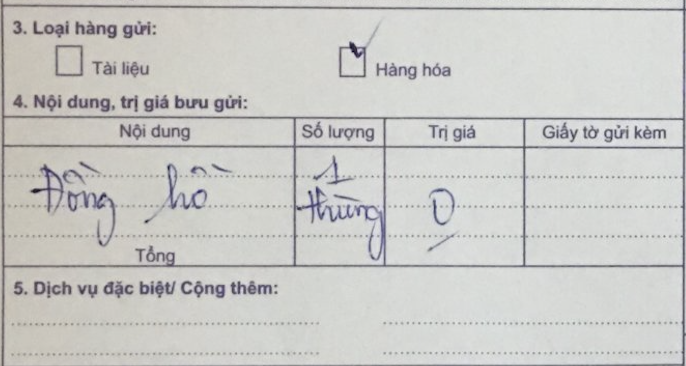 3. Loại hàng gửi:
Tài liệu Hàng hóa
4. Nội dung, trị giá bưu gửi:
Nội dung Số lượng Trị giá Giấy tờ gửi kèm
Đồng hồ 1 thùng 0
Tổng
5. Dịch vụ đặc biệt/ Cộng thêm: